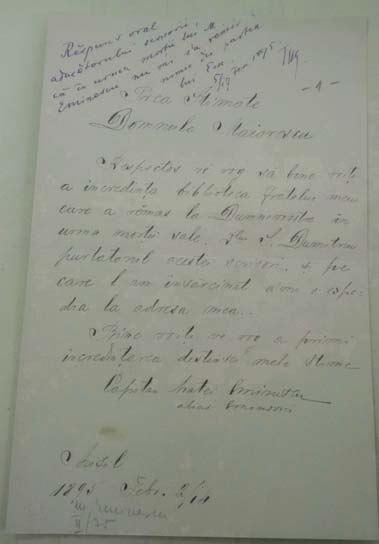 Răspuns oral
aducătorului scrisorii,
că în urma morții lui M.
Eminescu nu mi s'a remis
nimic din partea
lui Em. 5/17 Fev. 1895
TM
-1-
Prea Stimate
Domnule Maiorescu
Respectos vĕ rog să bine voiți
a încredința biblioteca fratelui meu
care a rămas la Dumneavoastră în
urma morții sale, D-lui S. Dumitriu
purtatorul acestei scrisori, pe
care l'am însărcinat a mi o espe-
dia la adresa mea.
Bine voiți vĕ rog a primi
încredințarea distinsei mele stime
Căpitan Matei Eminescu
Mizil
1895 Febr. 2/14
M. Eminescu
II/25